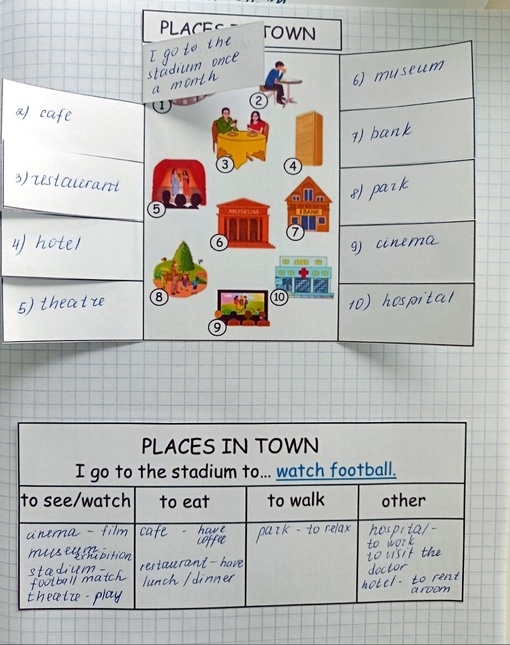 PLACES IN TOWN
I go to the
stadium once
a month
1
2
3
4
5
6
7
8
9
10
MUSEUM
BANK
2) cafe
3) restaurant
4) hotel
5) theatre
6) museum
7) bank
8) park
9) cinema
10) hospital
PLACES IN TOWN
I go to the stadium to... watch football.
to see/watch
to eat
to walk
other
cinema - film
museum - exhibition
stadium -
football match
theatre - play
cafe - have
coffee
restaurant - have
lunch / dinner
park - to relax
hospital -
to work
to visit the
doctor
hotel - to rent
a room